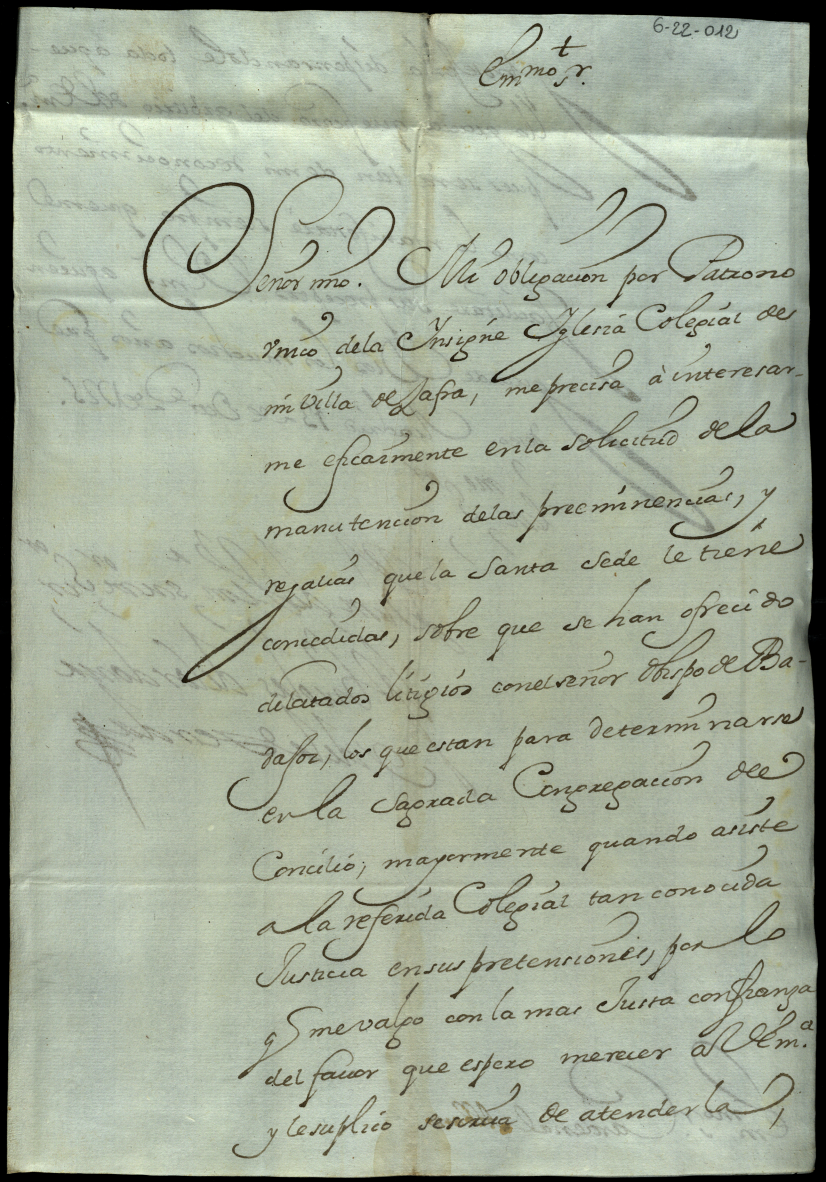 6-22-012
†
Emmo Sr.
Señor mio. Mi obligacion por Patrono
vnico dela Ynsigne Yglesia Colegial de
mi Villa de Zafra, me precisa à interesar-
me eficazmente en la solicitud de la
manutencion delas preeminencias, y
regalias que la Santa Sede le tiene
concedidas, sobre que se han ofrecido
dilatados litigios conel señor Obispo de Ba-
dajoz, los que estan para determinarse
en la Sagrada Congregacion de
Concilio; mayormente quando asiste
a la referida Colegial tan conocida
Justicia en sus pretensiones, por lo
q me valgo con la mas Justa confianza
del favor que espero merecer a VEm.a
y le suplico se sirva de atenderla,